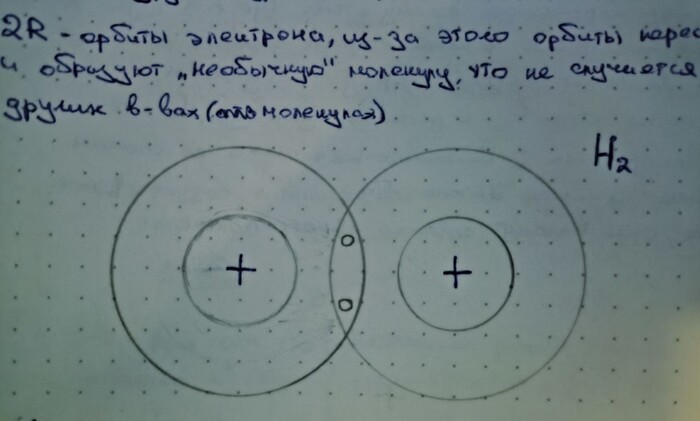 2R - орбиты электрона, из-за этого орбиты перес
и образуют „необычную" молекулу, что не случается
других в-вах (

молекулах)
H₂
+ +